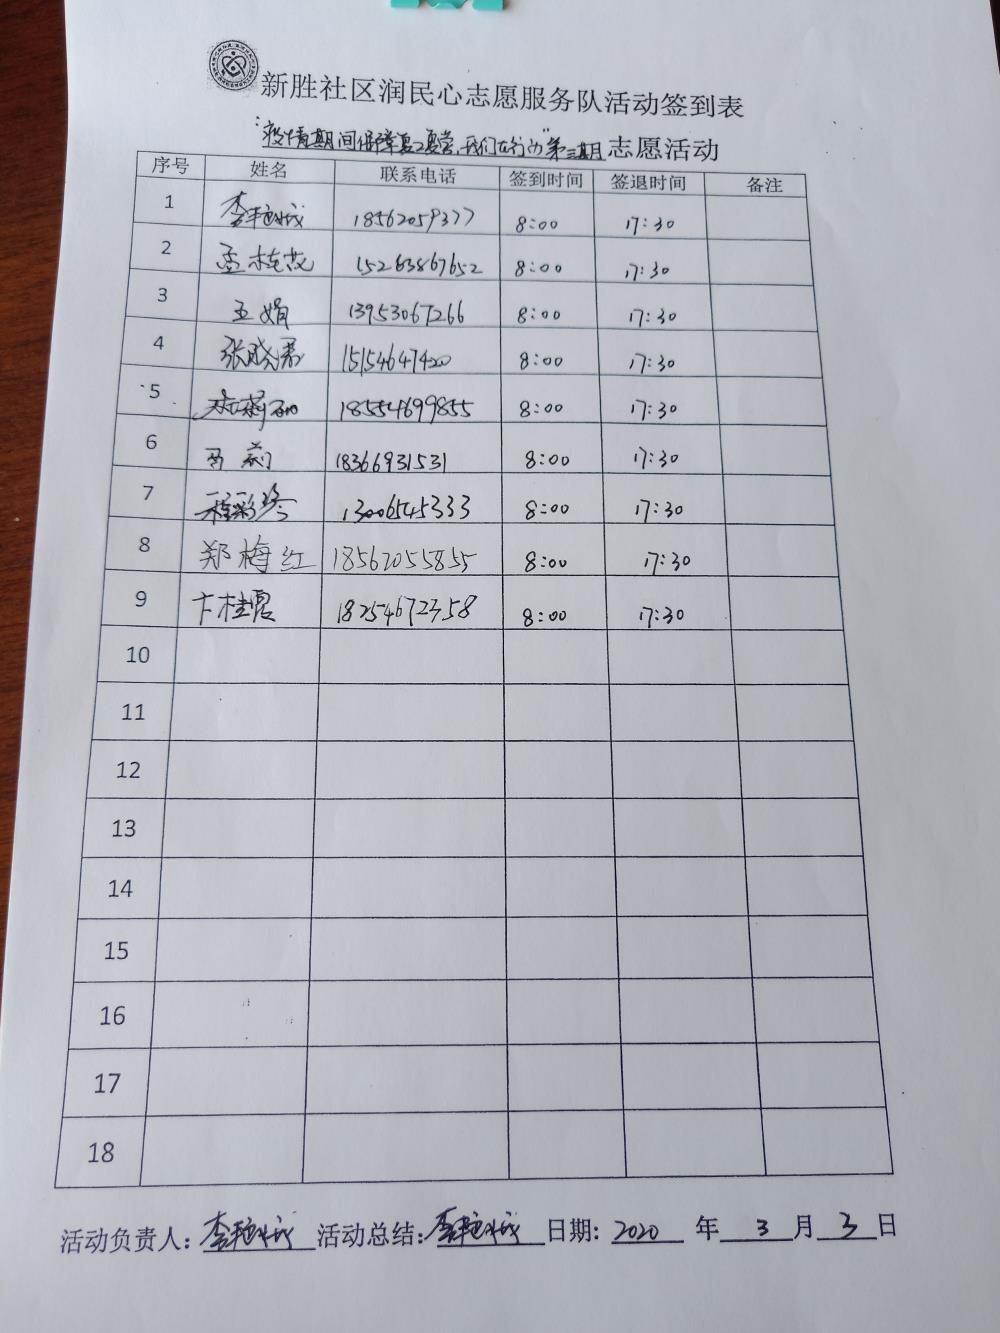 新胜社区润民心志愿服务队活动签到表
"疫情期间保障复工复营,我们在行动"第三期志愿活动
序号 姓名 联系电话 签到时间 签退时间 备注
1 李艳城 18562059377 8:00 17:30
2 孟桂花 15263867652 8:00 17:30
3 王娟 13953067266 8:00 17:30
4 张晓磊 15154647420 8:00 17:30
5 18554699855 8:00 17:30
6 马莉 18366931531 8:00 17:30
7 程彩珍 13006545333 8:00 17:30
8 郑梅红 18562055855 8:00 17:30
9 卞桂霞 18254672358 8:00 17:30
10
11
12
13
14
15
16
17
18
活动负责人:李艳城 活动总结:李艳城 日期: 2020 年 3 月 3 日